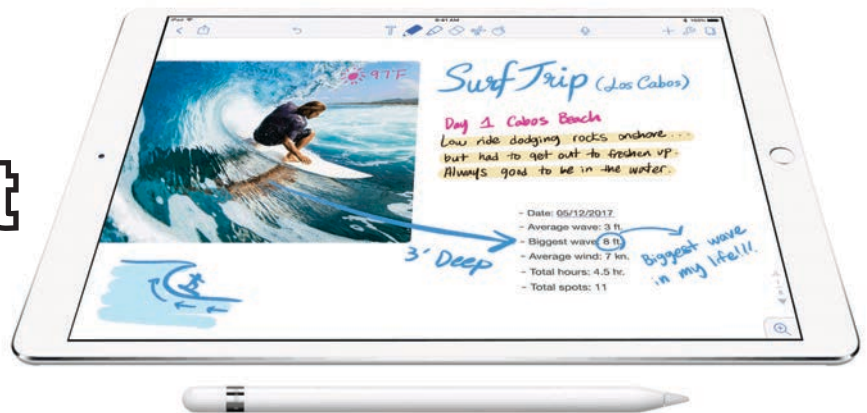 iPad
9:41 AM
100%
97°F
Surf Trip (Los Cabos)
Day 1 Cabos Beach
Low ride dodging rocks onshore...
but had to get out to freshen up.
Always good to be in the water.
- Date: 05/12/2017
- Average wave: 3 ft.
- Biggest wave: 8 ft.
- Average wind: 7 kn.
- Total hours: 4.5 hr.
- Total spots: 11
3' Deep
Biggest wave
in my life!!!